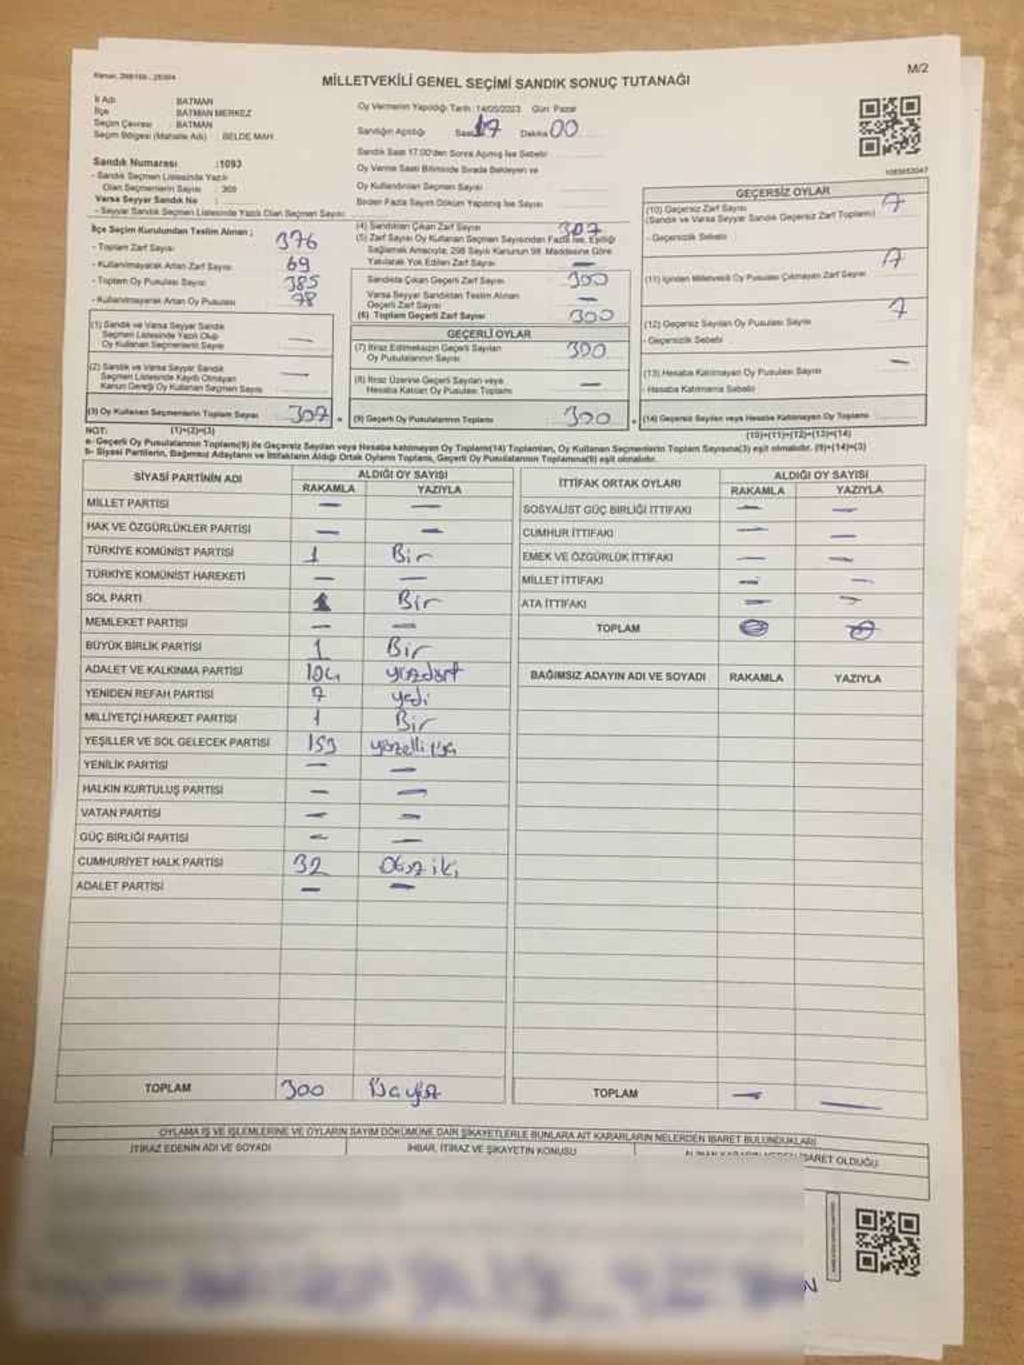 M/2
MİLLETVEKİLİ GENEL SEÇİMİ SANDIK SONUÇ TUTANAĞI
İl Adı : BATMAN
İlçe : BATMAN MERKEZ
Seçim Çevresi : BATMAN
Seçim Bölgesi (Mahalle Adı) : BELDE MAH.
Oy Vermenin Yapıldığı Tarih : 14/05/2023 Gün: Pazar
Sandığın Açıldığı Saat 17 Dakika 00
Sandık Saat 17.00'den Sonra Açılmış İse Sebebi
Oy Verme Saati Bitiminde Sırada Bekleyen ve
Oy Kullandırılan Seçmen Sayısı
Birden Fazla Sayım Döküm Yapılmış İse Sayısı
Sandık Numarası :1093
- Sandık Seçmen Listesinde Yazılı
Olan Seçmenlerin Sayısı :
Varsa Seyyar Sandık No :
- Seyyar Sandık Seçmen Listesinde Yazılı Olan Seçmen Sayısı:
İlçe Seçim Kurulundan Teslim Alınan ;
- Toplam Zarf Sayısı 376
- Kullanılmayarak Artan Zarf Sayısı 69
- Toplam Oy Pusulası Sayısı 385
- Kullanılmayarak Artan Oy Pusulası 78
(1) Sandık ve Varsa Seyyar Sandık
Seçmen Listesinde Yazılı Olup
Oy Kullanan Seçmenlerin Sayısı —
(2) Sandık ve Varsa Seyyar Sandık
Seçmen Listesinde Kayıtlı Olmayan
Kanun Gereği Oy Kullanan Seçmen Sayısı —
(3) Oy Kullanan Seçmenlerin Toplam Sayısı 307
(1)+(2)=(3)
(4) Sandıktan Çıkan Zarf Sayısı 307
(5) Zarf Sayısı Oy Kullanan Seçmen Sayısından Fazla İse, Eşitliği
Sağlamak Amacıyla, 298 Sayılı Kanunun 98. Maddesine Göre
Yakılarak Yok Edilen Zarf Sayısı —
Sandıkta Çıkan Geçerli Zarf Sayısı 300
Varsa Seyyar Sandıktan Teslim Alınan
Geçerli Zarf Sayısı —
(6) Toplam Geçerli Zarf Sayısı 300
GEÇERLİ OYLAR
(7) İtiraz Edilmeksizin Geçerli Sayılan
Oy Pusulalarının Sayısı 300
(8) İtiraz Üzerine Geçerli Sayılan veya
Hesaba Katılan Oy Pusulası Toplamı —
(9) Geçerli Oy Pusulalarının Toplamı 300
GEÇERSİZ OYLAR
(10) Geçersiz Zarf Sayısı
(Sandık ve Varsa Seyyar Sandık Geçersiz Zarf Toplamı) 7
- Geçersizlik Sebebi
(11) İçinden Milletvekili Oy Pusulası Çıkmayan Zarf Sayısı 7
(12) Geçersiz Sayılan Oy Pusulası Sayısı 7
- Geçersizlik Sebebi
(13) Hesaba Katılmayan Oy Pusulası Sayısı —
- Hesaba Katılmama Sebebi
(14) Geçersiz Sayılan veya Hesaba Katılmayan Oy Toplamı
(10)+(11)+(12)+(13)=(14)
NOT:
a- Geçerli Oy Pusulalarının Toplamı(9) ile Geçersiz Sayılan veya Hesaba katılmayan Oy Toplamı(14) Toplamları, Oy Kullanan Seçmenlerin Toplam Sayısına(3) eşit olmalıdır. (9)+(14)=(3)
b- Siyasi Partilerin, Bağımsız Adayların ve İttifakların Aldığı Ortak Oyların Toplamı, Geçerli Oy Pusulalarının Toplamına(9) eşit olmalıdır.
SİYASİ PARTİNİN ADI ALDIĞI OY SAYISI
RAKAMLA YAZIYLA
MİLLET PARTİSİ — —
HAK VE ÖZGÜRLÜKLER PARTİSİ — —
TÜRKİYE KOMÜNİST PARTİSİ 1 Bir
TÜRKİYE KOMÜNİST HAREKETİ — —
SOL PARTİ 1 Bir
MEMLEKET PARTİSİ — —
BÜYÜK BİRLİK PARTİSİ 1 Bir
ADALET VE KALKINMA PARTİSİ 104 yüzdört
YENİDEN REFAH PARTİSİ 7 yedi
MİLLİYETÇİ HAREKET PARTİSİ 1 Bir
YEŞİLLER VE SOL GELECEK PARTİSİ 153
YENİLİK PARTİSİ — —
HALKIN KURTULUŞ PARTİSİ — —
VATAN PARTİSİ — —
GÜÇ BİRLİĞİ PARTİSİ — —
CUMHURİYET HALK PARTİSİ 32 Otuz iki
ADALET PARTİSİ — —
TOPLAM 300 Üçyüz
İTTİFAK ORTAK OYLARI ALDIĞI OY SAYISI
RAKAMLA YAZIYLA
SOSYALİST GÜÇ BİRLİĞİ İTTİFAKI — —
CUMHUR İTTİFAKI — —
EMEK VE ÖZGÜRLÜK İTTİFAKI — —
MİLLET İTTİFAKI — —
ATA İTTİFAKI — —
TOPLAM
BAĞIMSIZ ADAYIN ADI VE SOYADI RAKAMLA YAZIYLA
TOPLAM — —
OYLAMA İŞ VE İŞLEMLERİNE VE OYLARIN SAYIM DÖKÜMÜNE DAİR ŞİKAYETLERLE BUNLARA AİT KARARLARIN NELERDEN İBARET BULUNDUKLARI
İTİRAZ EDENİN ADI VE SOYADI İHBAR, İTİRAZ VE ŞİKAYETİN KONUSU